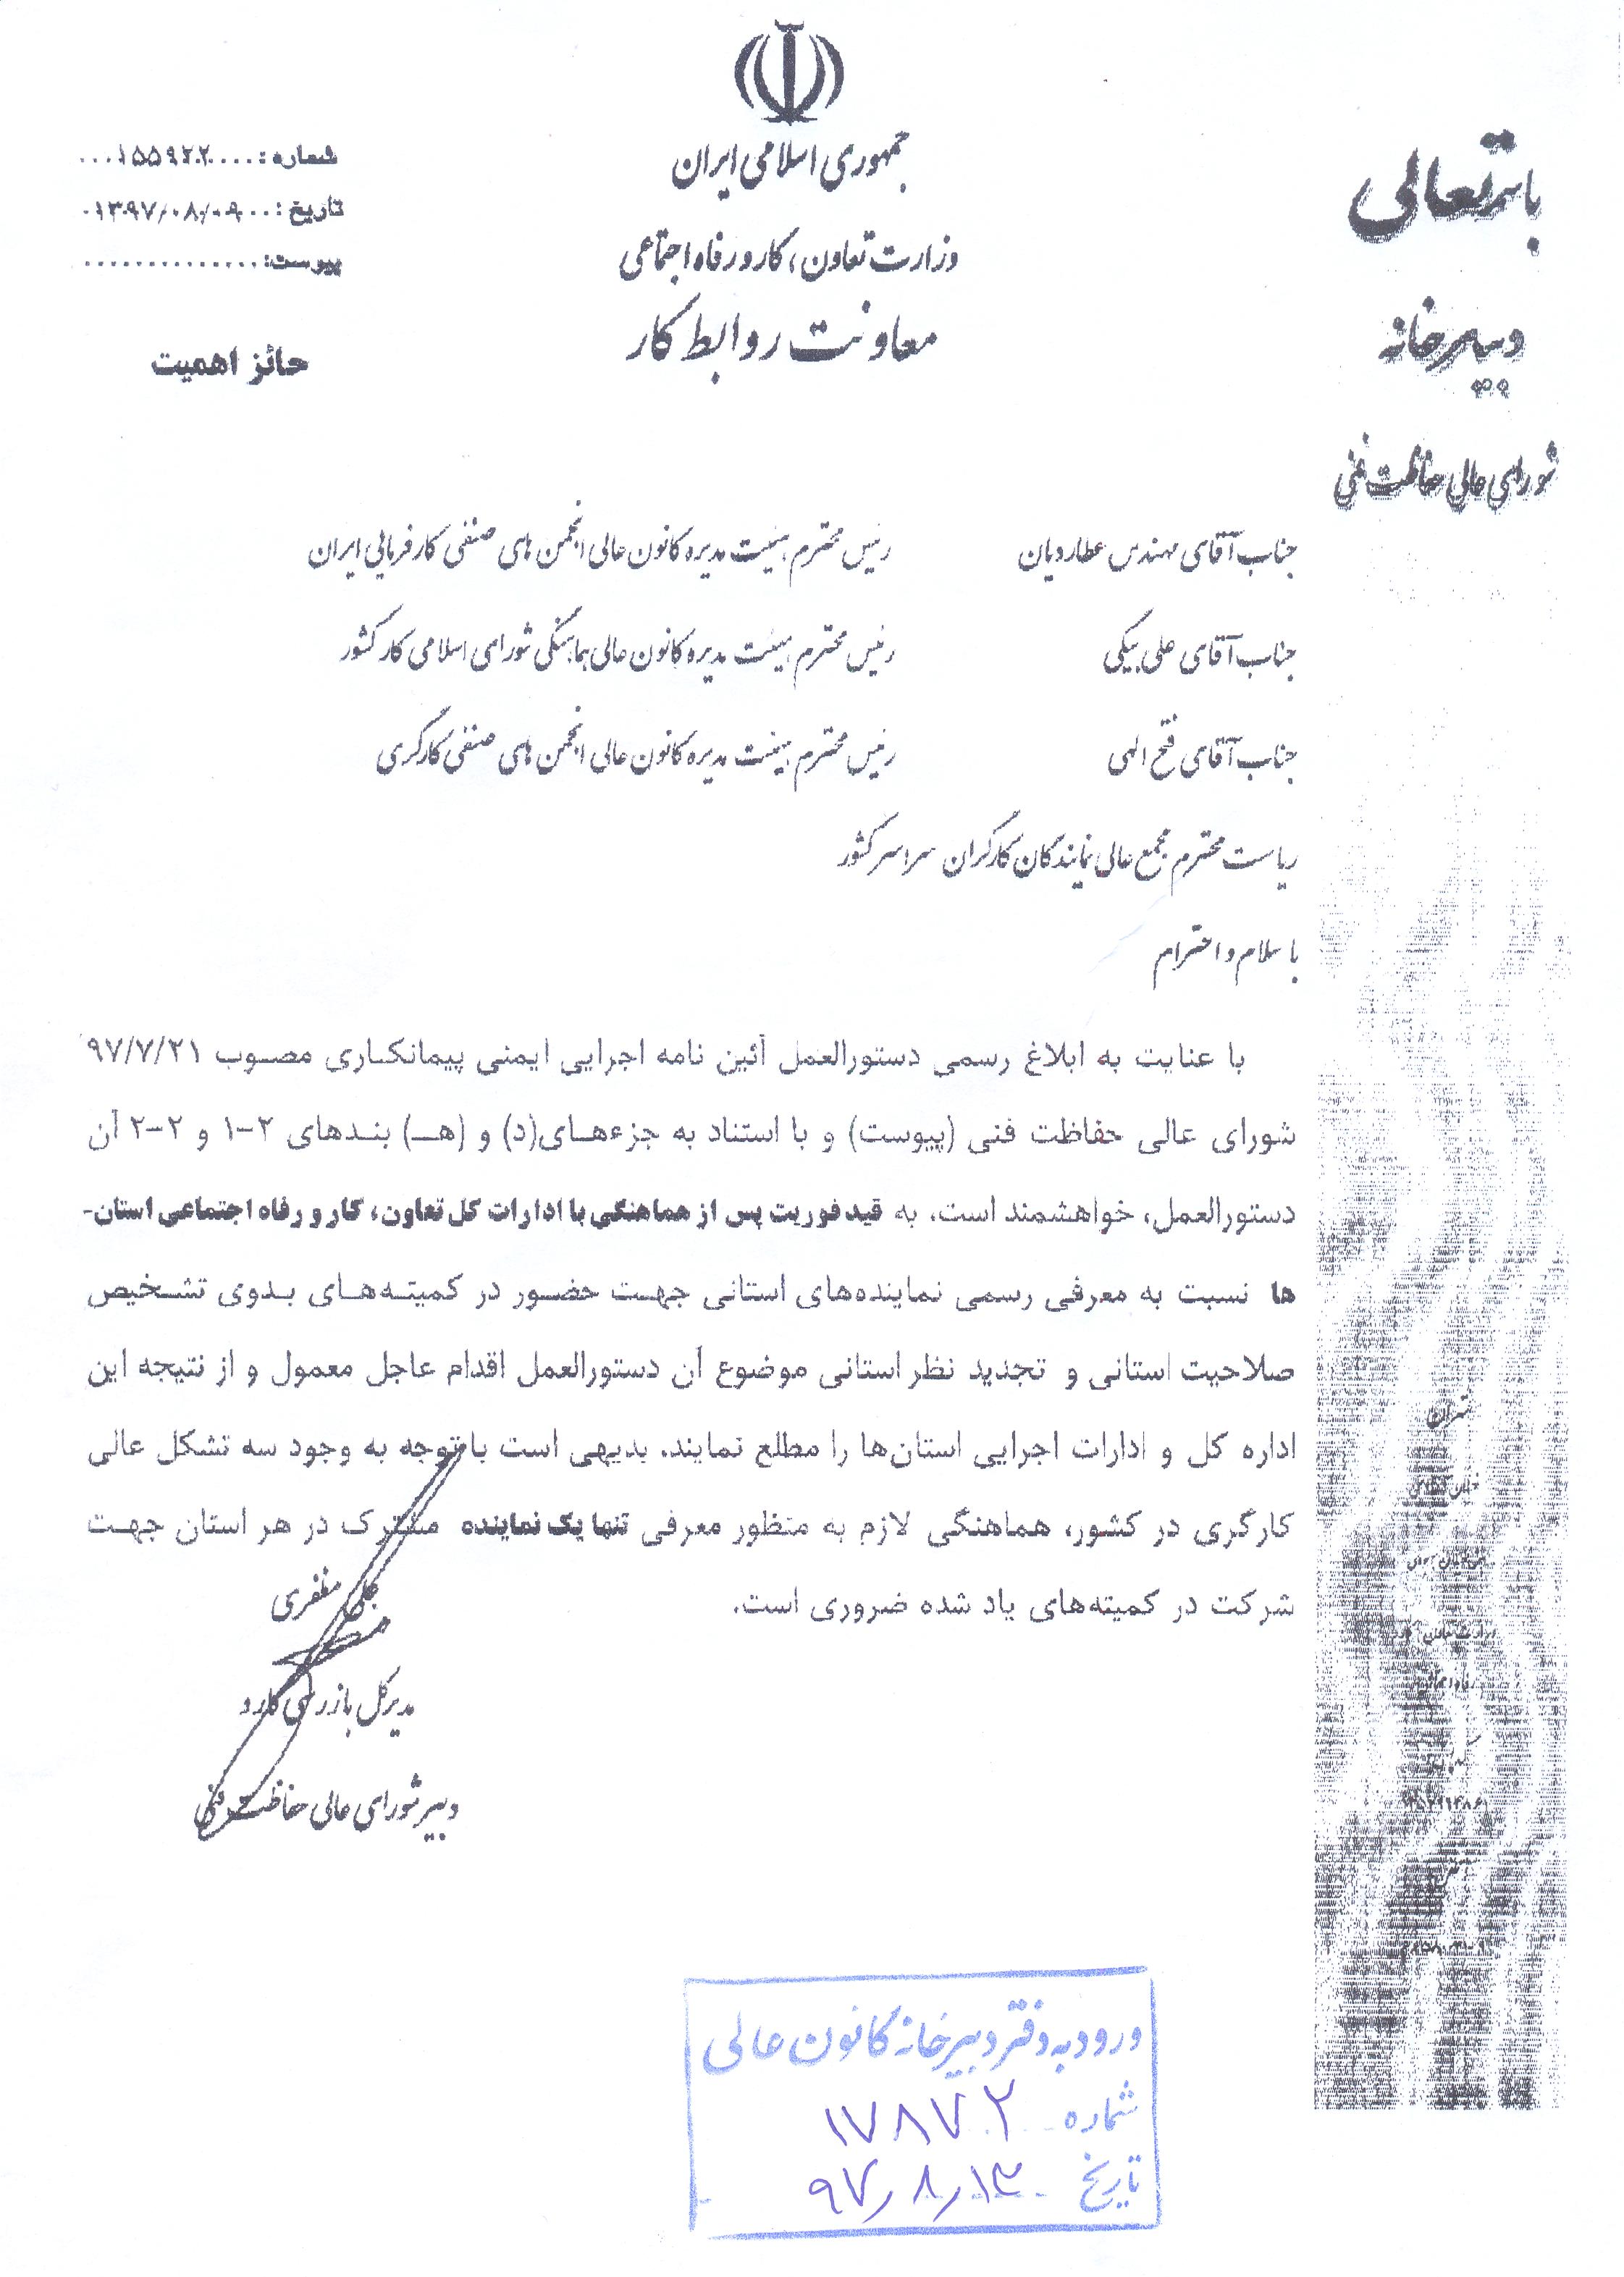 باسمه تعالی
جمهوری اسلامی ایران
وزارت تعاون، کار و رفاه اجتماعی
معاونت روابط کار
شماره: ....۱۵۵۹۲۲...
تاریخ: ...۱۳۹۷/۰۸/۰۹
پیوست: ...............
حائز اهمیت
دبیرخانه
شورای عالی حفاظت فنی
جناب آقای مهندس عطاردیان رئیس محترم هیئت مدیره کانون عالی انجمن های صنفی کارفرمایی ایران
جناب آقای علی بیگی رئیس محترم هیئت مدیره کانون عالی هماهنگی شورای اسلامی کار کشور
جناب آقای فتح الهی رئیس محترم هیئت مدیره کانون عالی انجمن های صنفی کارگری
ریاست محترم مجمع عالی نمایندگان کارگران سراسر کشور
با سلام و احترام
با عنایت به ابلاغ رسمی دستورالعمل آئین نامه اجرایی ایمنی پیمانکاری مصوب ۹۷/۷/۲۱
شورای عالی حفاظت فنی (پیوست) و با استناد به جزءهای(د) و (هـ) بندهای ۲-۱ و ۲-۲ آن
دستورالعمل، خواهشمند است. به قید فوریت پس از هماهنگی با ادارات کل تعاون، کار و رفاه اجتماعی استان-
ها نسبت به معرفی رسمی نماینده‌های استانی جهت حضور در کمیته‌های بدوی تشخیص
صلاحیت استانی و تجدید نظر استانی موضوع آن دستورالعمل اقدام عاجل معمول و از نتیجه این
اداره کل و ادارات اجرایی استان‌ها را مطلع نمایند. بدیهی است با توجه به وجود سه تشکل عالی
کارگری در کشور، هماهنگی لازم به منظور معرفی تنها یک نماینده مشترک در هر استان جهت
شرکت در کمیته‌های یاد شده ضروری است.
علی مظفری
مدیرکل بازرسی کار و
دبیر شورای عالی حفاظت فنی
تهران
ورود به دفتر دبیرخانه کانون عالی
شماره ۱۷۸۷۲
تاریخ ۹۷/۸/۱۳